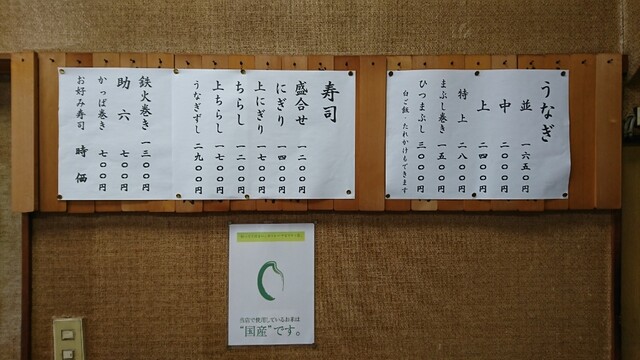 うなぎ
並 一六五〇円
中 二〇〇〇円
上 二四〇〇円
特上 二八〇〇円
まぶし巻き 一五〇〇円
ひつまぶし 三〇〇〇円
白ご飯、たれかけもできます
寿司
盛合せ 一二〇〇円
にぎり 一四〇〇円
上にぎり 一七〇〇円
ちらし 一二〇〇円
上ちらし 一七〇〇円
うなぎずし 二九〇〇円
鉄火巻き 一三〇〇円
助六 七〇〇円
かっぱ巻き 七〇〇円
お好み寿司 時価
当店で使用しているお米は
"国産"です。